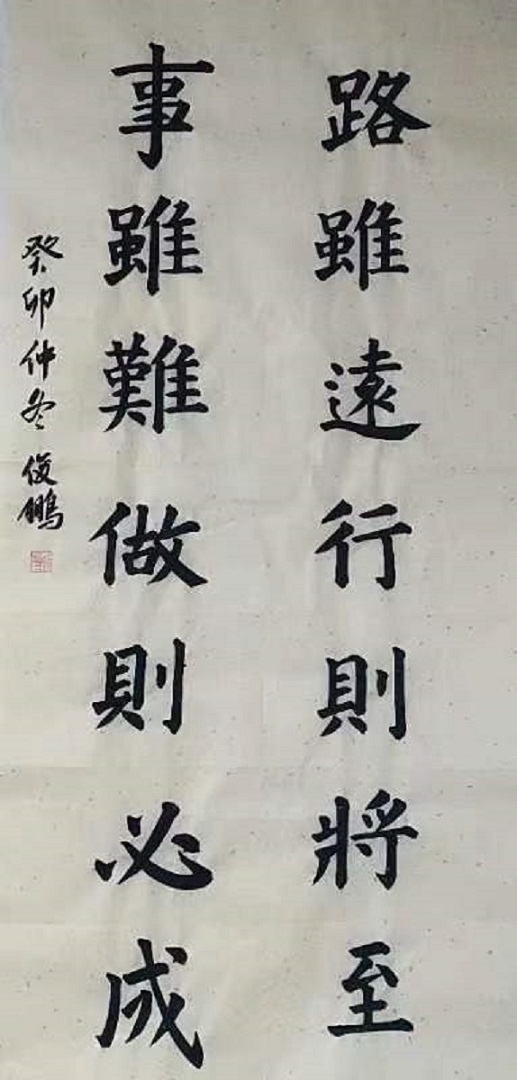 路雖遠行則將至
事雖難做則必成
癸卯仲冬俊鵬